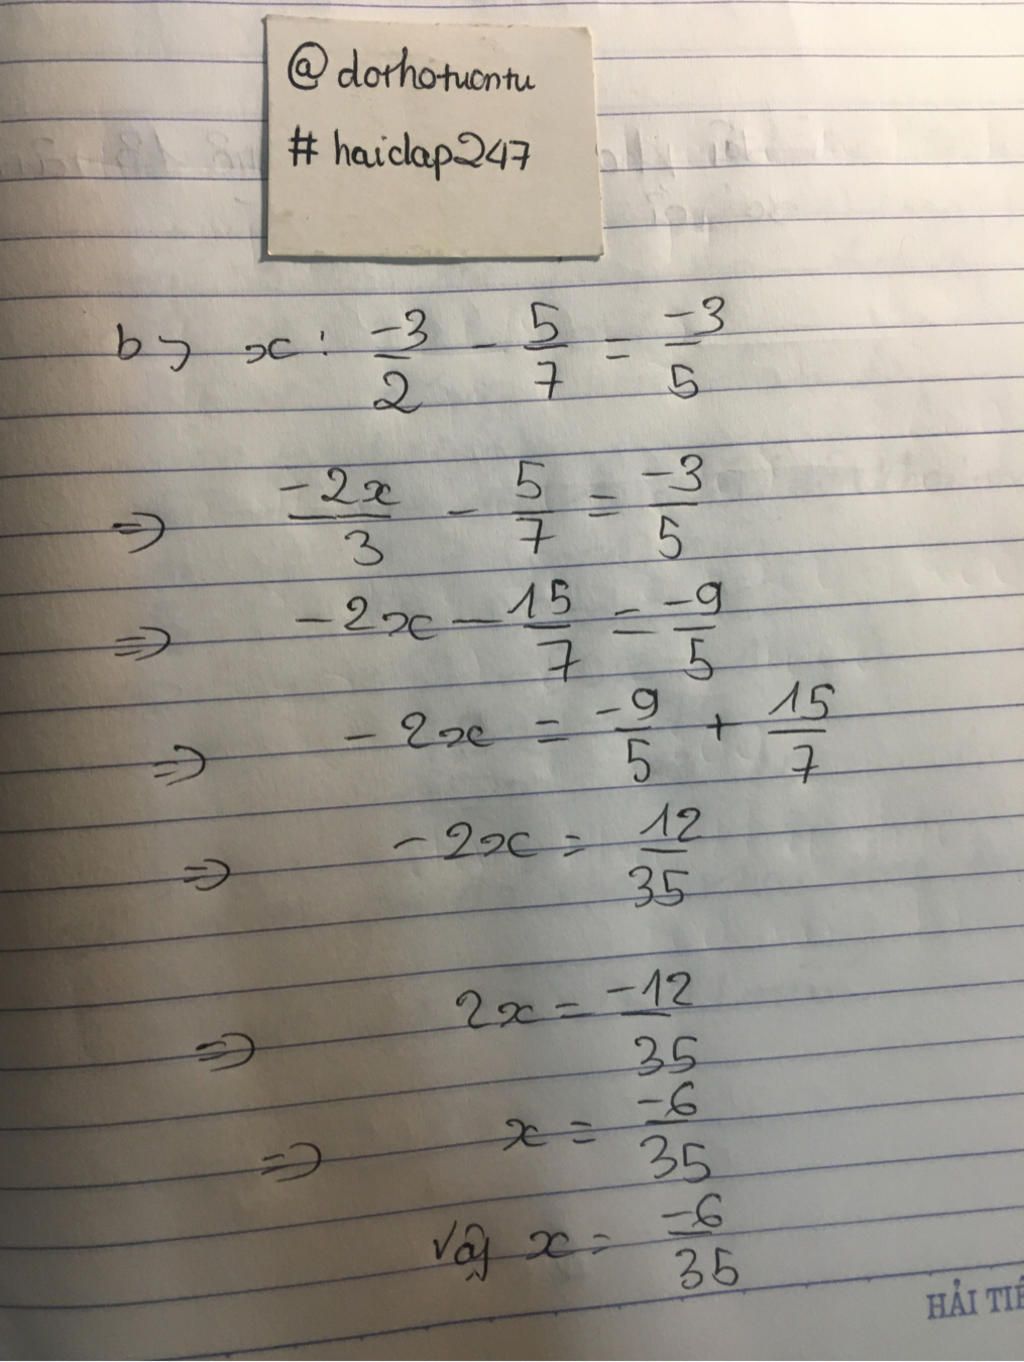 @ dorhotuontu
# haidap247
b) x : -3/2 - 5/7 = -3/5
=> -2x/3 - 5/7 = -3/5
=> -2x - 15/7 = -9/5
=> -2x = -9/5 + 15/7
=> -2x = 12/35
=> 2x = -12/35
=> x = -6/35
Vậy x = -6/35
HẢI TIẾ